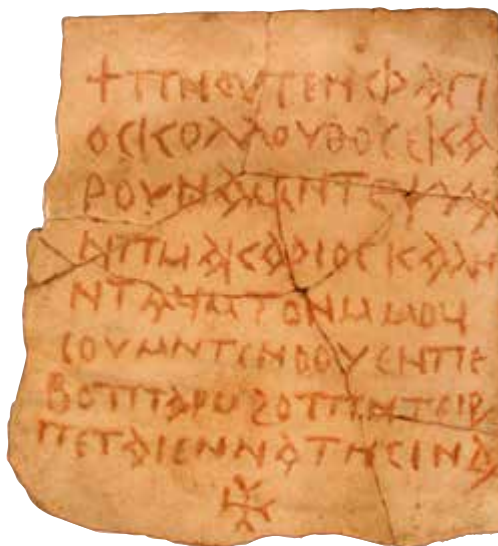 ⳁⲡⲛⲟⲩⲧⲉⲛⲫⲁⲅⲓ
ⲟⲥⲕⲟⲗⲗⲟⲩⲑⲟⲥⲉⲕⲁ
ⲣⲟⲩⲛⲁⲙⲛⲧⲉⲯⲩ
ⲛⲡⲙⲁⲕⲁⲣⲓⲟⲥⲕⲁⲗⲏ
ⲛⲧⲁϥⲙⲧⲟⲛⲙⲙⲟϥ
ⲥⲟⲩⲙⲛⲧⲥⲛⲟⲟⲩⲥⲛⲡⲉ
ⲃⲟⲧⲡⲁⲣⲙϩⲟⲧⲡⲛⲧⲉⲓⲣ
ⲡⲉⲧⲁⲓⲉⲛⲛⲁⲧⲏⲥⲓⲛⲇ